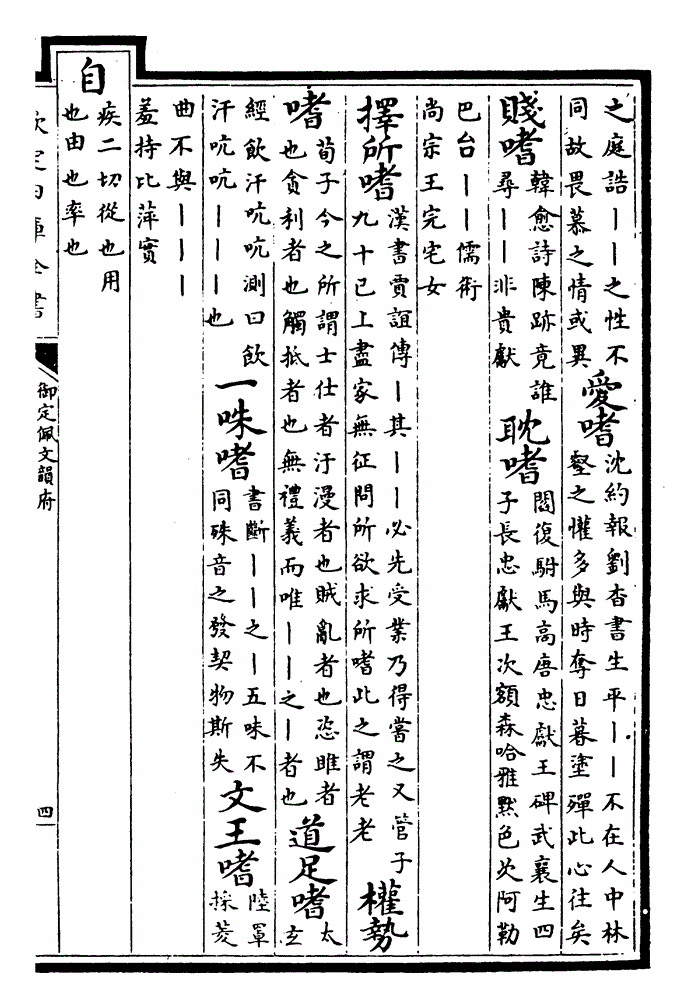 之庭誥｜｜之性不
同故畏慕之情或異
愛嗜
沈約報劉杳書生平｜｜不在人中林
壑之懽多與時奪日暮塗殫此心往矣
賤嗜
韓愈詩陳跡竟誰
尋｜｜非貴獻
耽嗜
閻復駙馬高唐忠獻王碑武襄生四
子長忠獻王次額森哈雅黙色次阿勒
巴台｜｜儒術
尚宗王完宅女
擇所嗜
漢書賈誼傳｜其｜｜必先受業乃得嘗之又管子
九十已上盡家無征問所欲求所嗜此之謂老老
權勢
嗜
荀子今之所謂士仕者汙漫者也賊亂者也恣睢者
也貪利者也觸抵者也無禮義而唯｜｜之｜者也
道足嗜
太
玄
經飲汗吭吭測曰飲
汗吭吭｜｜｜也
一味嗜
書斷｜｜之｜五味不
同殊音之發契物斯失
文王嗜
陸罩
採菱
曲不與｜｜｜
羞持比萍實
自
疾二切從也用
也由也率也
欽定四庫全書
御定佩文韻府
四